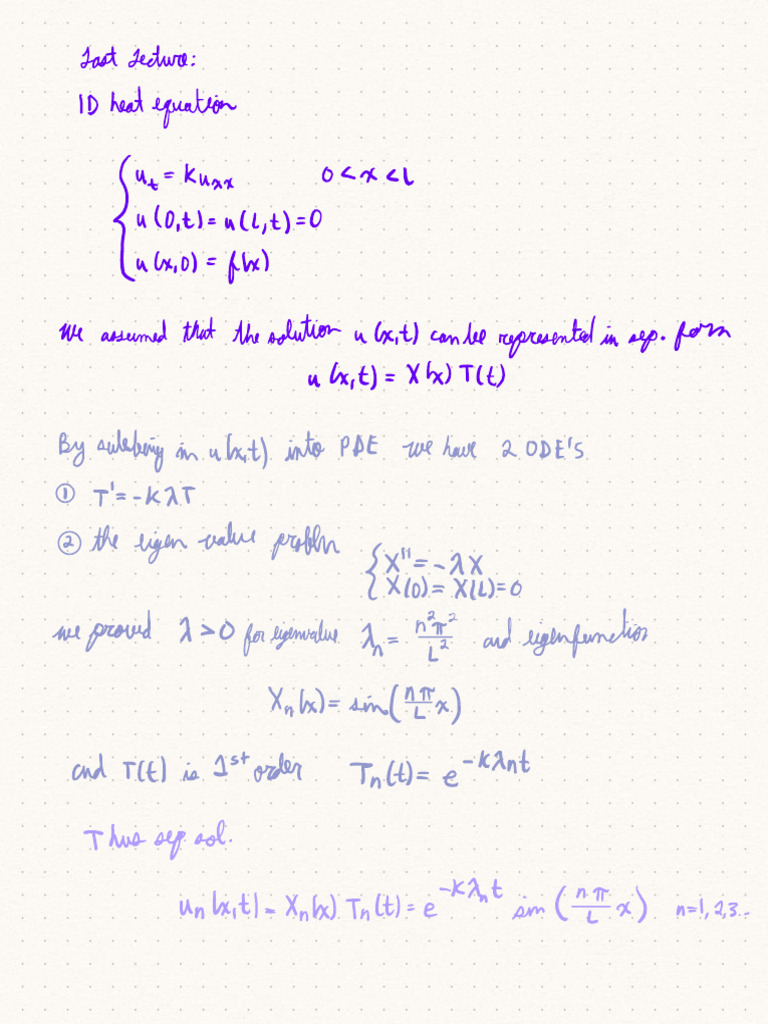 Last Lecture:
1D heat equation
u_t = k u_xx   0 < x < L
u(0,t) = u(L,t) = 0
u(x,0) = f(x)
We assumed that the solution u(x,t) can be represented in sep. form
u(x,t) = X(x) T(t)
By subbing in u(x,t) into PDE we have 2 ODE's
① T' = -kλT
② the eigen value problm
X'' = -λX
X(0) = X(L) = 0
we proved λ > 0 for eigenvalue λ_n = n²π²/L² and eigenfunction
X_n(x) = sin(nπ/L x)
and T(t) is 1st order T_n(t) = e^{-kλ_n t}
Thus sep sol.
u_n(x,t) = X_n(x) T_n(t) = e^{-kλ_n t} sin(nπ/L x) n=1,2,3...